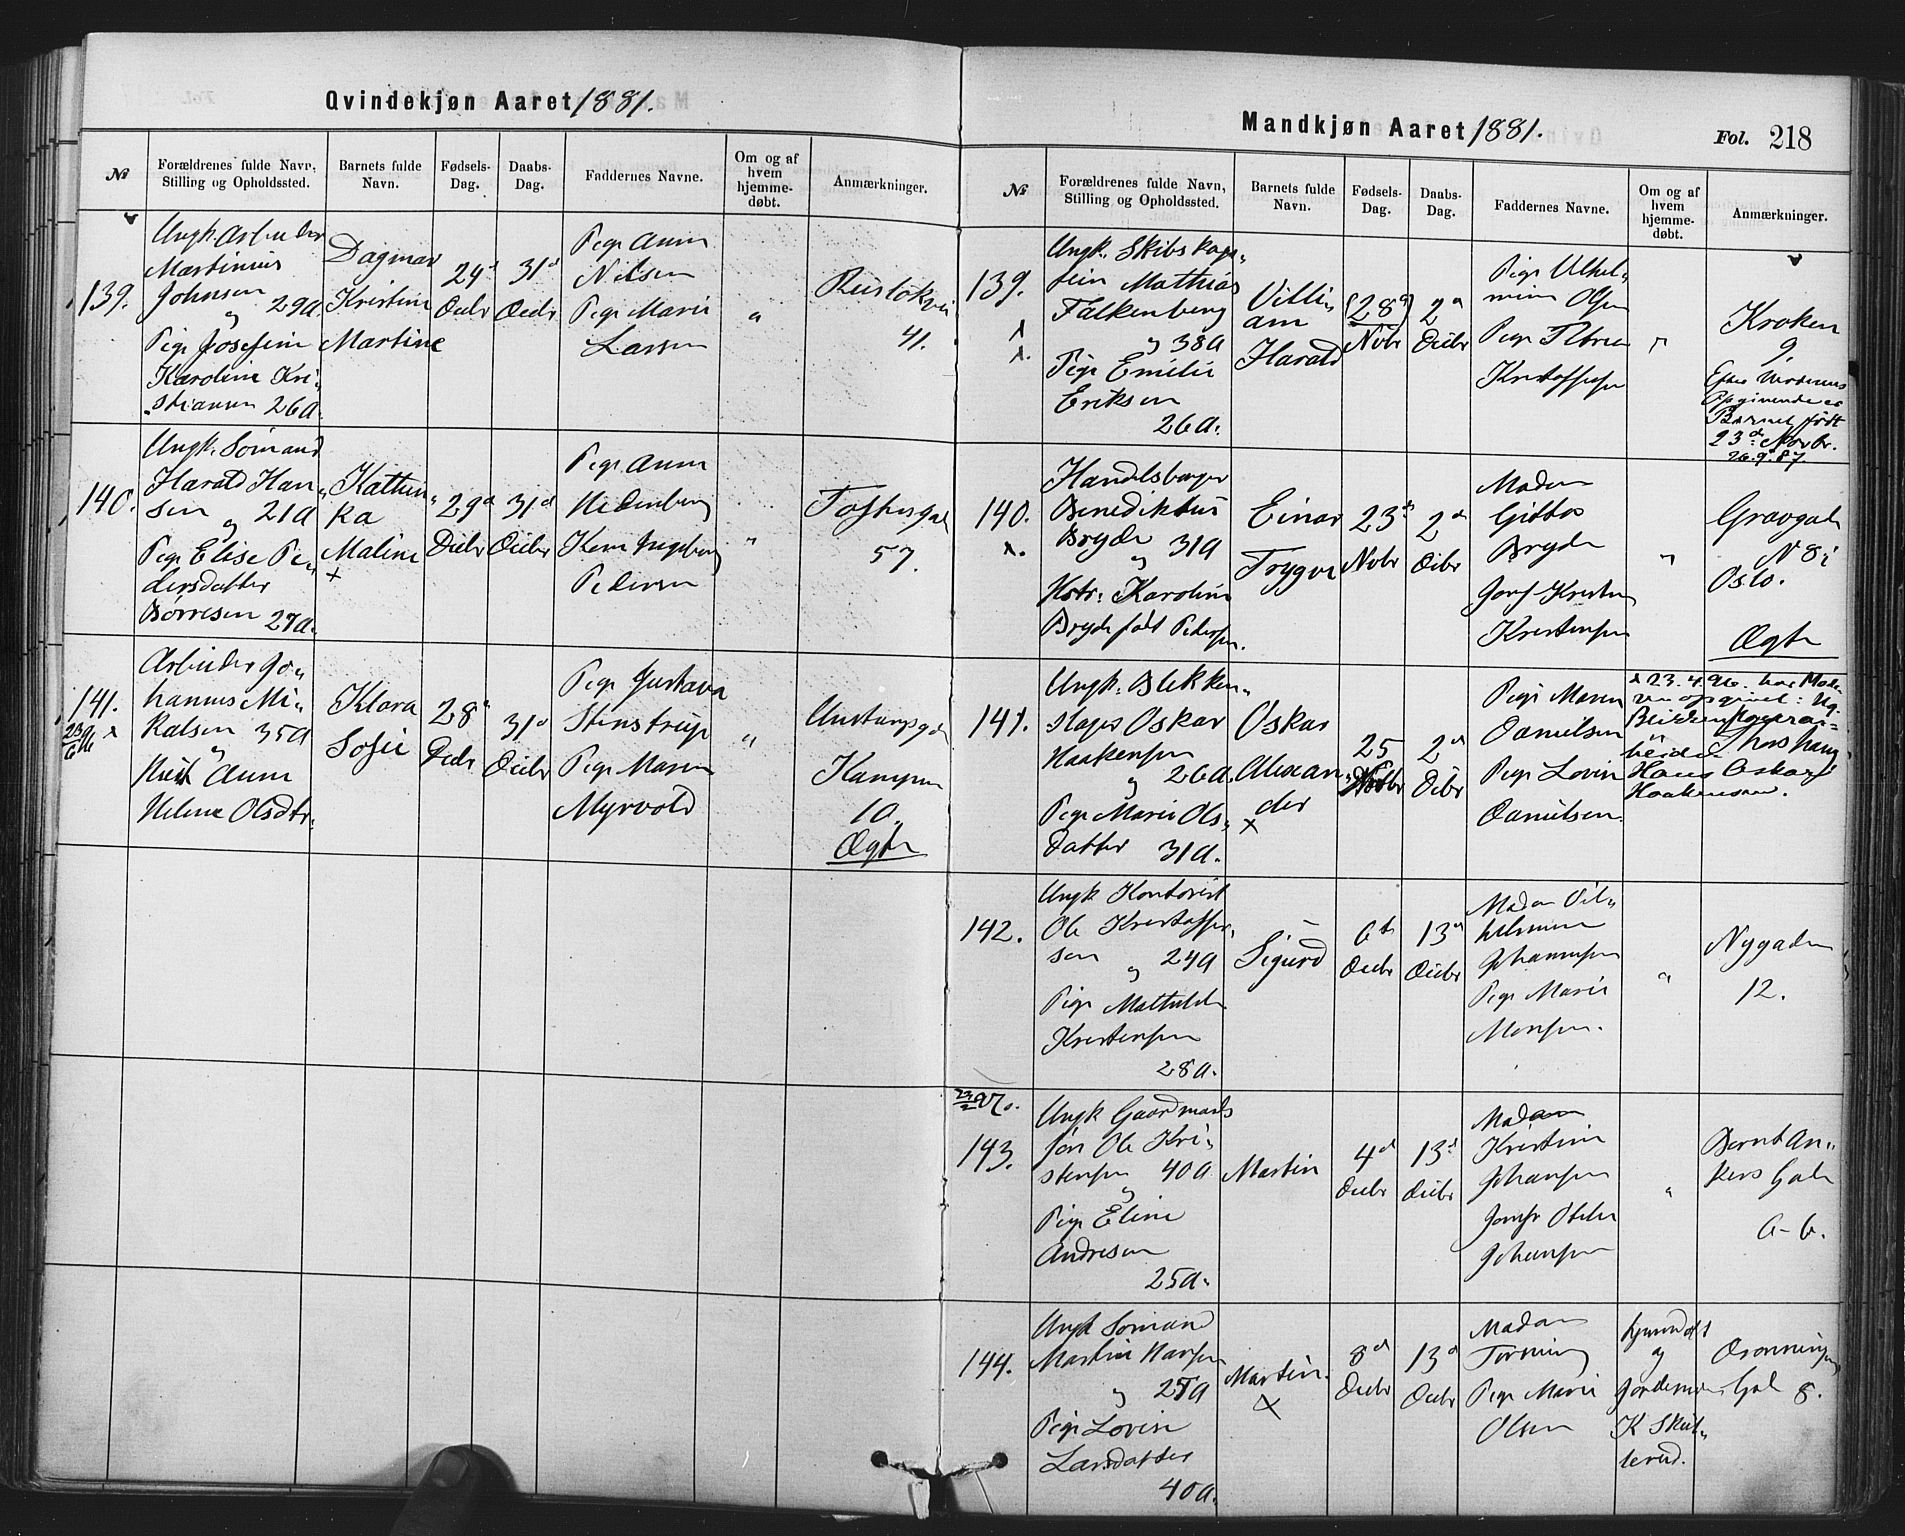 Qvindekjøn Aaret 1881.
№
Forældrenes fulde Navn, Stilling og Opholdssted.
Barnets fulde Navn.
Fødsels-Dag.
Daabs-Dag.
Faddernes Navne.
Om og af hvem hjemme-døbt.
Anmærkninger.
139.
Ungk. Arbeider
Martinius
Johnsen
og 29a
Pige Josefine
Karoline Kri-
stiansen 26a.
Dagmar
Kristine
Martine
29d
Decbr
31d
Decbr
Pige Anna
Nilsen
Pige Marie
Larsen
"
Ruseløkvei
41.
140.
Ungk. Sømand
Harald Han-
sen og 21a
Pige Elise Pe-
dersdatter
Børresen 27a.
Kathin-
ka
Maline
×
29d
Decbr
31d
Decbr
Pige Anna
Hedenberg
Kone Ingeborg
Pedersen
"
Toftesgade
57.
141.
Arbeider Jo-
hannes Mi-
kalsen 35a
og
Hust Anne
Helene Olsdtr.
Klara
Sofie
28d
Decbr
31d
Decbr
Pige Gustava
Stenstrup
Pige Maren
Myrvold
"
Kampen
10.
Ægte
Mandkjøn Aaret 1881.
Fol. 218
№
Forældrenes fulde Navn, Stilling og Opholdssted.
Barnets fulde Navn.
Fødsels-Dag.
Daabs-Dag.
Faddernes Navne.
Om og af hvem hjemme-døbt.
Anmærkninger.
139.
Ungk. Skibskap-
tein Mathias
Falkenberg
og 38a
Pige Emilie
Eriksen
26a.
Villi-
am
Harald
(28d)
Novbr
2d
Decbr
Pige Vilhel-
mine Olsen
Pige Petrea
Kristoffersen
"
Kroken
9.
Efter Moderens
Opgivende er
Barnet født
23d Novbr.
26.9.87.
140.
×.
Handelsborger
Benediktus
Bryde 31a
og
Hstr: Karoline
Bryde født Pedersen.
Einar
Trygve
23d
Novbr
2d
Decbr
Madam
Gibbo
Bryde
Jomf. Kristine
Kristensen
"
Gravgade
N 8 i
Oslo.
Ægte
141.
Ungk. Blikken-
slager Oskar
Haakensen
og 26a
Pige Marie Ols-
datter 31a.
Oskar
Alexan-
der
×
25
2d
Decbr
Pige Maren
Danielsen
Pige Lovise
Danielsen.
Hans Oskar
Haakensen.
142.
Ungk Kontorist
Ole Kristoffer-
sen og 24a
Pige Mathilde
Kristensen
28a.
Sigurd
6t
Decbr
13d
Decbr
Madam Vil-
helmine
Johannesen
Pige Marie
Monsen.
"
Nygaden
12.
143.
Ungk Gaardmands
søn Ole Kri-
stensen 40a
og
Pige Eline
Andresen
25a.
Martin
4d
Decbr
13d
Decbr
Madam
Kristine
Johansen
Jomfr Otilie
Johansen
"
Bernt An-
kers Gade
6-b.
144.
Ungk Sømand
Martin Hansen
og 25a
Pige Lovise
Larsdatter
40a.
Martin.
×
8d
Decbr
13d
Decbr
Madam
Tørning
Pige Marie
Olsen
hjemdøbt
af
Jordemoder
K Skul-
lerud.
Dronningens
Gade 8.